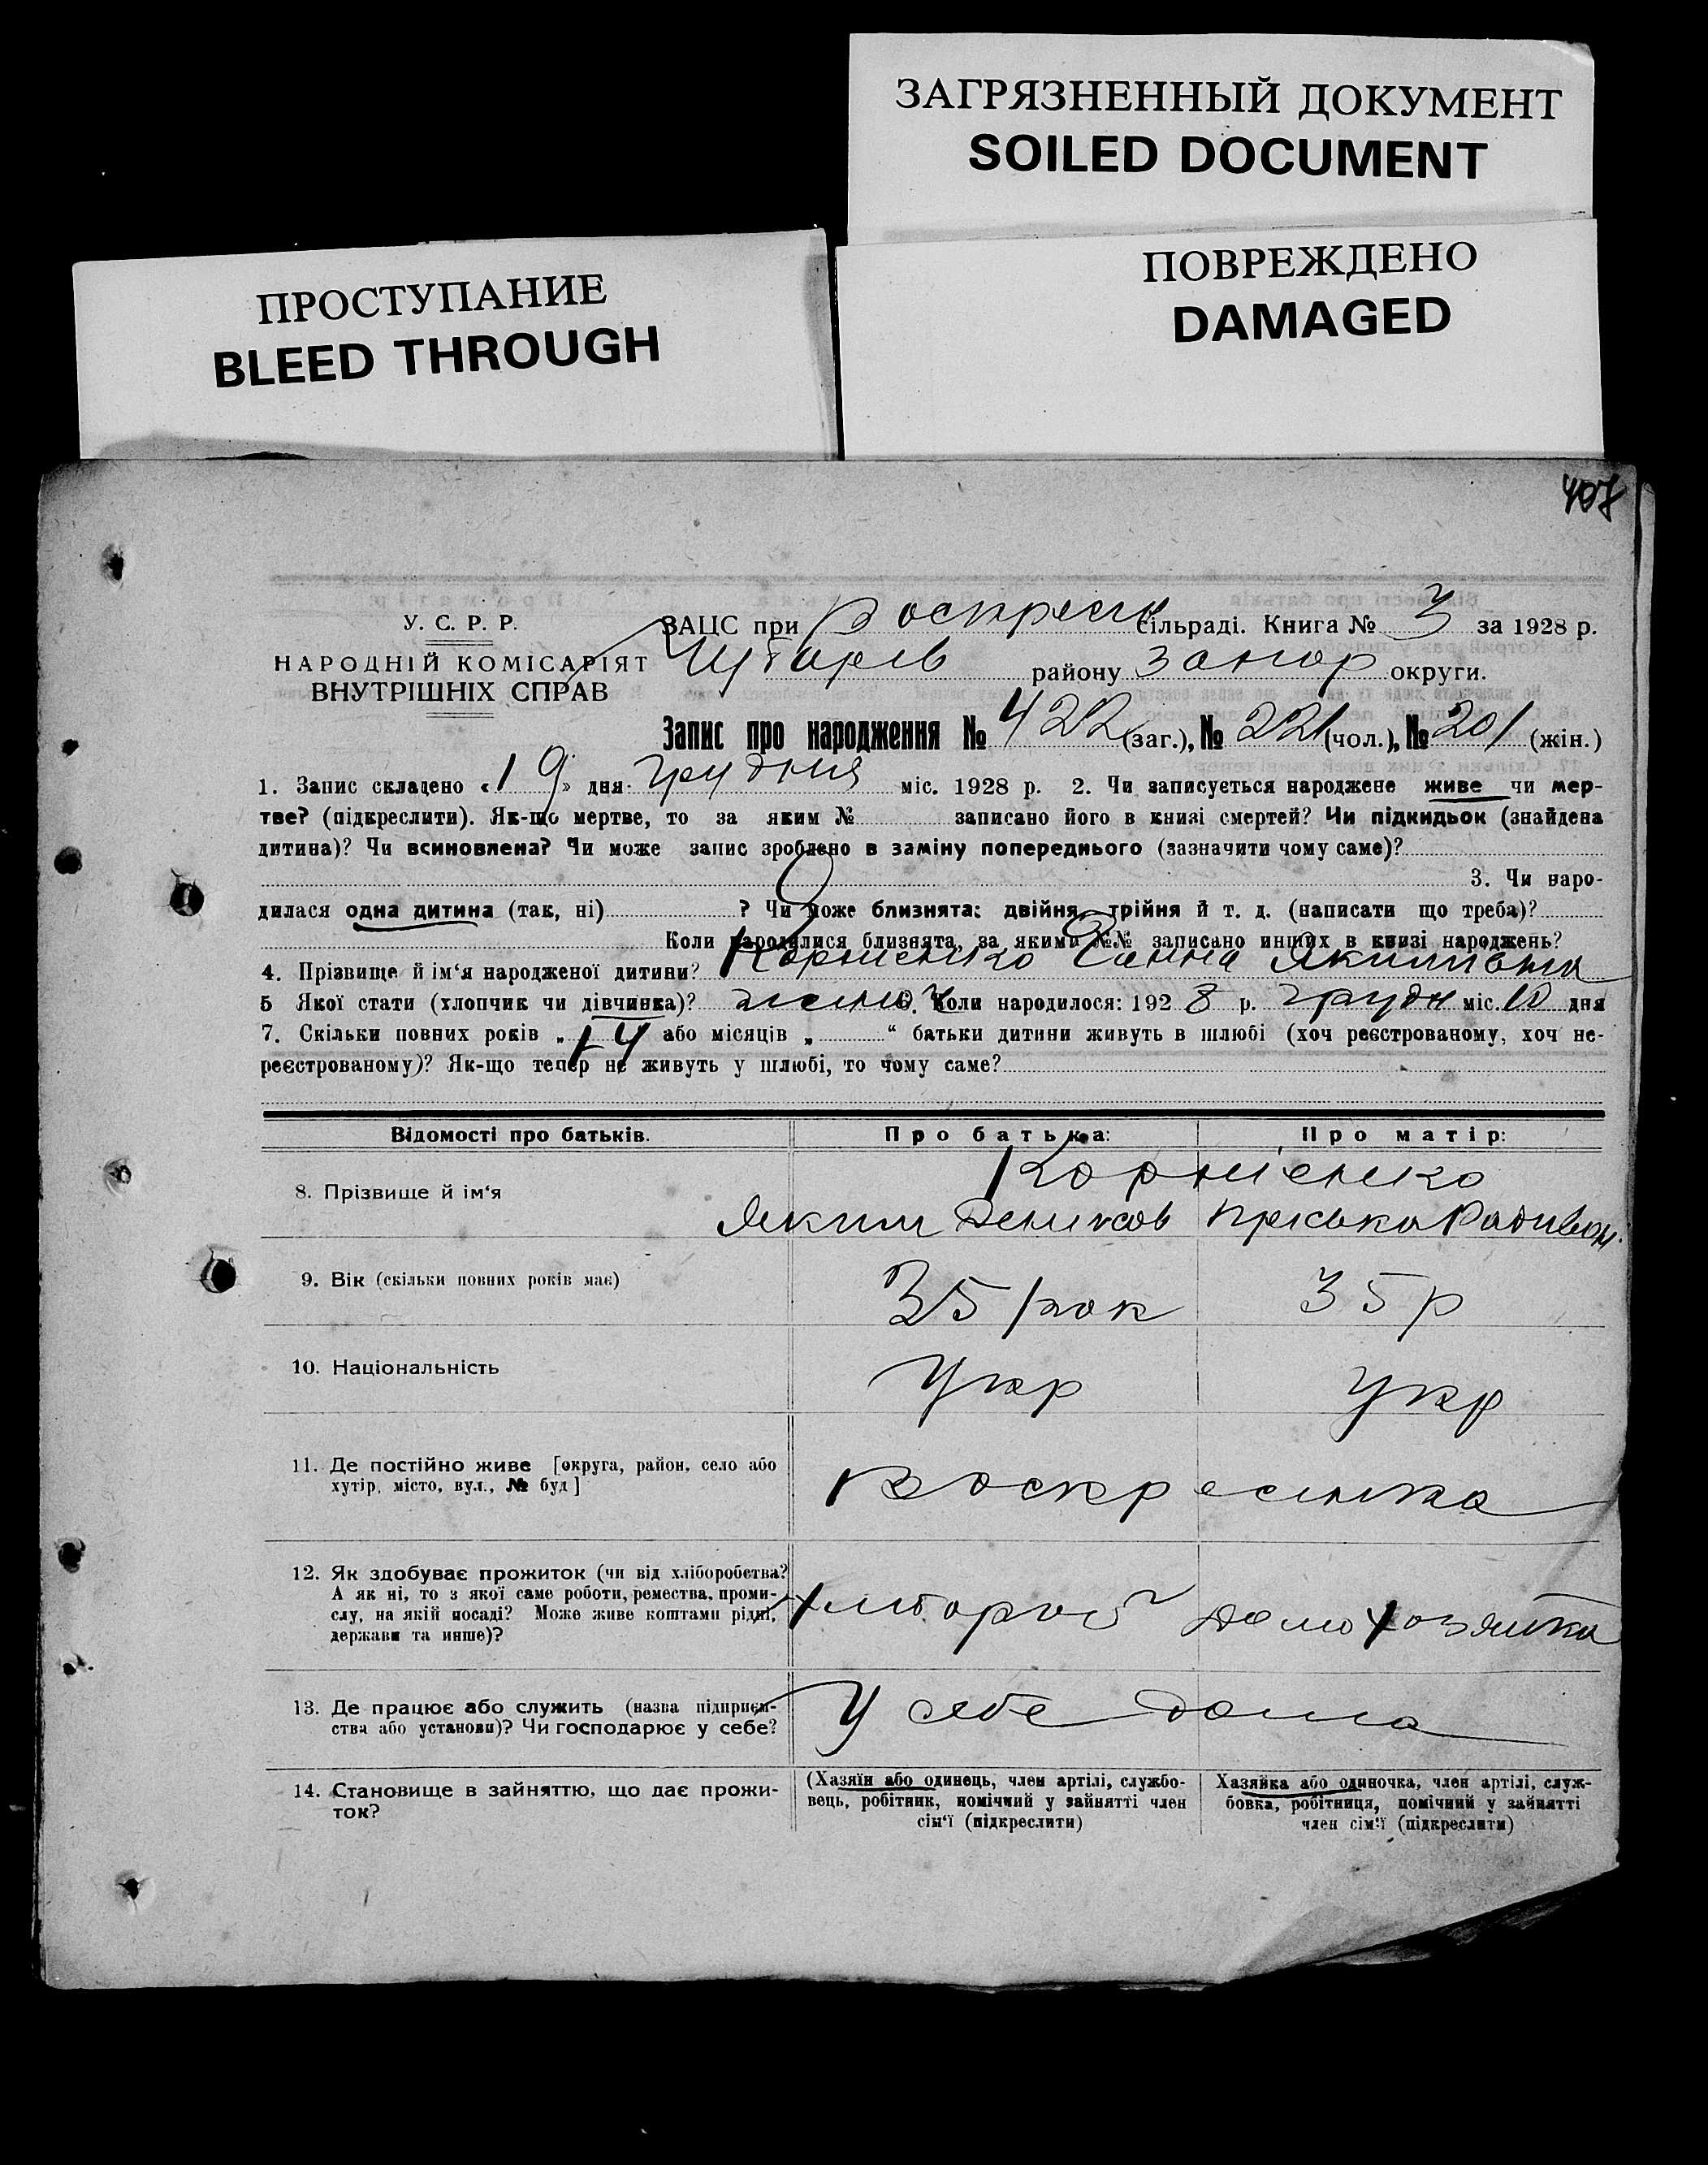 ЗАГРЯЗНЕННЫЙ ДОКУМЕНТ
SOILED DOCUMENT
ПРОСТУПАНИЕ
BLEED THROUGH
ПОВРЕЖДЕНО
DAMAGED
407
У. С. Р. Р.
НАРОДНІЙ КОМІСАРІЯТ
ВНУТРІШНІХ СПРАВ
ЗАЦС при Воскресен сільраді. Книга № 3 за 1928 р.
Чубарів району Запор округи.
Запис про народження № 422 (заг.), № 221 (чол.), № 201 (жін.)
1. Запис складено «19» дня грудня міс. 1928 р. 2. Чи записується народжене живе чи мер-
тве? (підкреслити). Як-що мертве, то за яким № записано його в книзі смертей? Чи підкидьок (знайдена
дитина)? Чи всиновлена? Чи може запис зроблено в заміну попереднього (зазначити чому саме)?
3. Чи наро-
дилася одна дитина (так, ні) ? Чи може близнята: двійня, трійня й т. д. (написати що треба)?
Коли народилися близнята, за якими №№ записано инших в книзі народжень?
4. Прізвище й ім‘я народженої дитини? Корнієнко Ганна Якимівна
5 Якої стати (хлопчик чи дівчинка)? жіноч 6. Коли народилося: 1928 р. грудн міс. 10 дня
7. Скільки повних років „14 або місяців „ “ батьки дитини живуть в шлюбі (хоч реєстрованому, хоч не-
реєстрованому)? Як-що тепер не живуть у шлюбі, то чому саме?
Відомості про батьків.
Про батька:
Про матір:
8. Прізвище й ім‘я
Корнієнко
Яким Денисов
Пріська Радивон.
9. Вік (скільки повних років має)
35 рок
35 р
10. Національність
Укр
Укр
11. Де постійно живе [округа, район, село або
хутір, місто, вул., № буд]
Воскресенка
12. Як здобуває прожиток (чи від хліборобства?
А як ні, то з якої саме роботи, ремества, проми-
слу, на якій посаді? Може живе коштами рідні,
держави та инше)?
хлібороб
домохозяйка
13. Де працює або служить (назва підприєм-
ства або установи)? Чи господарює у себе?
У себе дома
14. Становище в зайняттю, що дає прожи-
ток?
(Хазяїн або одинець, член артілі, службо-
вець, робітник, помічний у зайнятті член
сім‘ї (підкреслити)
Хазяйка або одиночка, член артілі, служ-
бовка, робітниця, помічний у зайнятті
член сім‘ї (підкреслити)